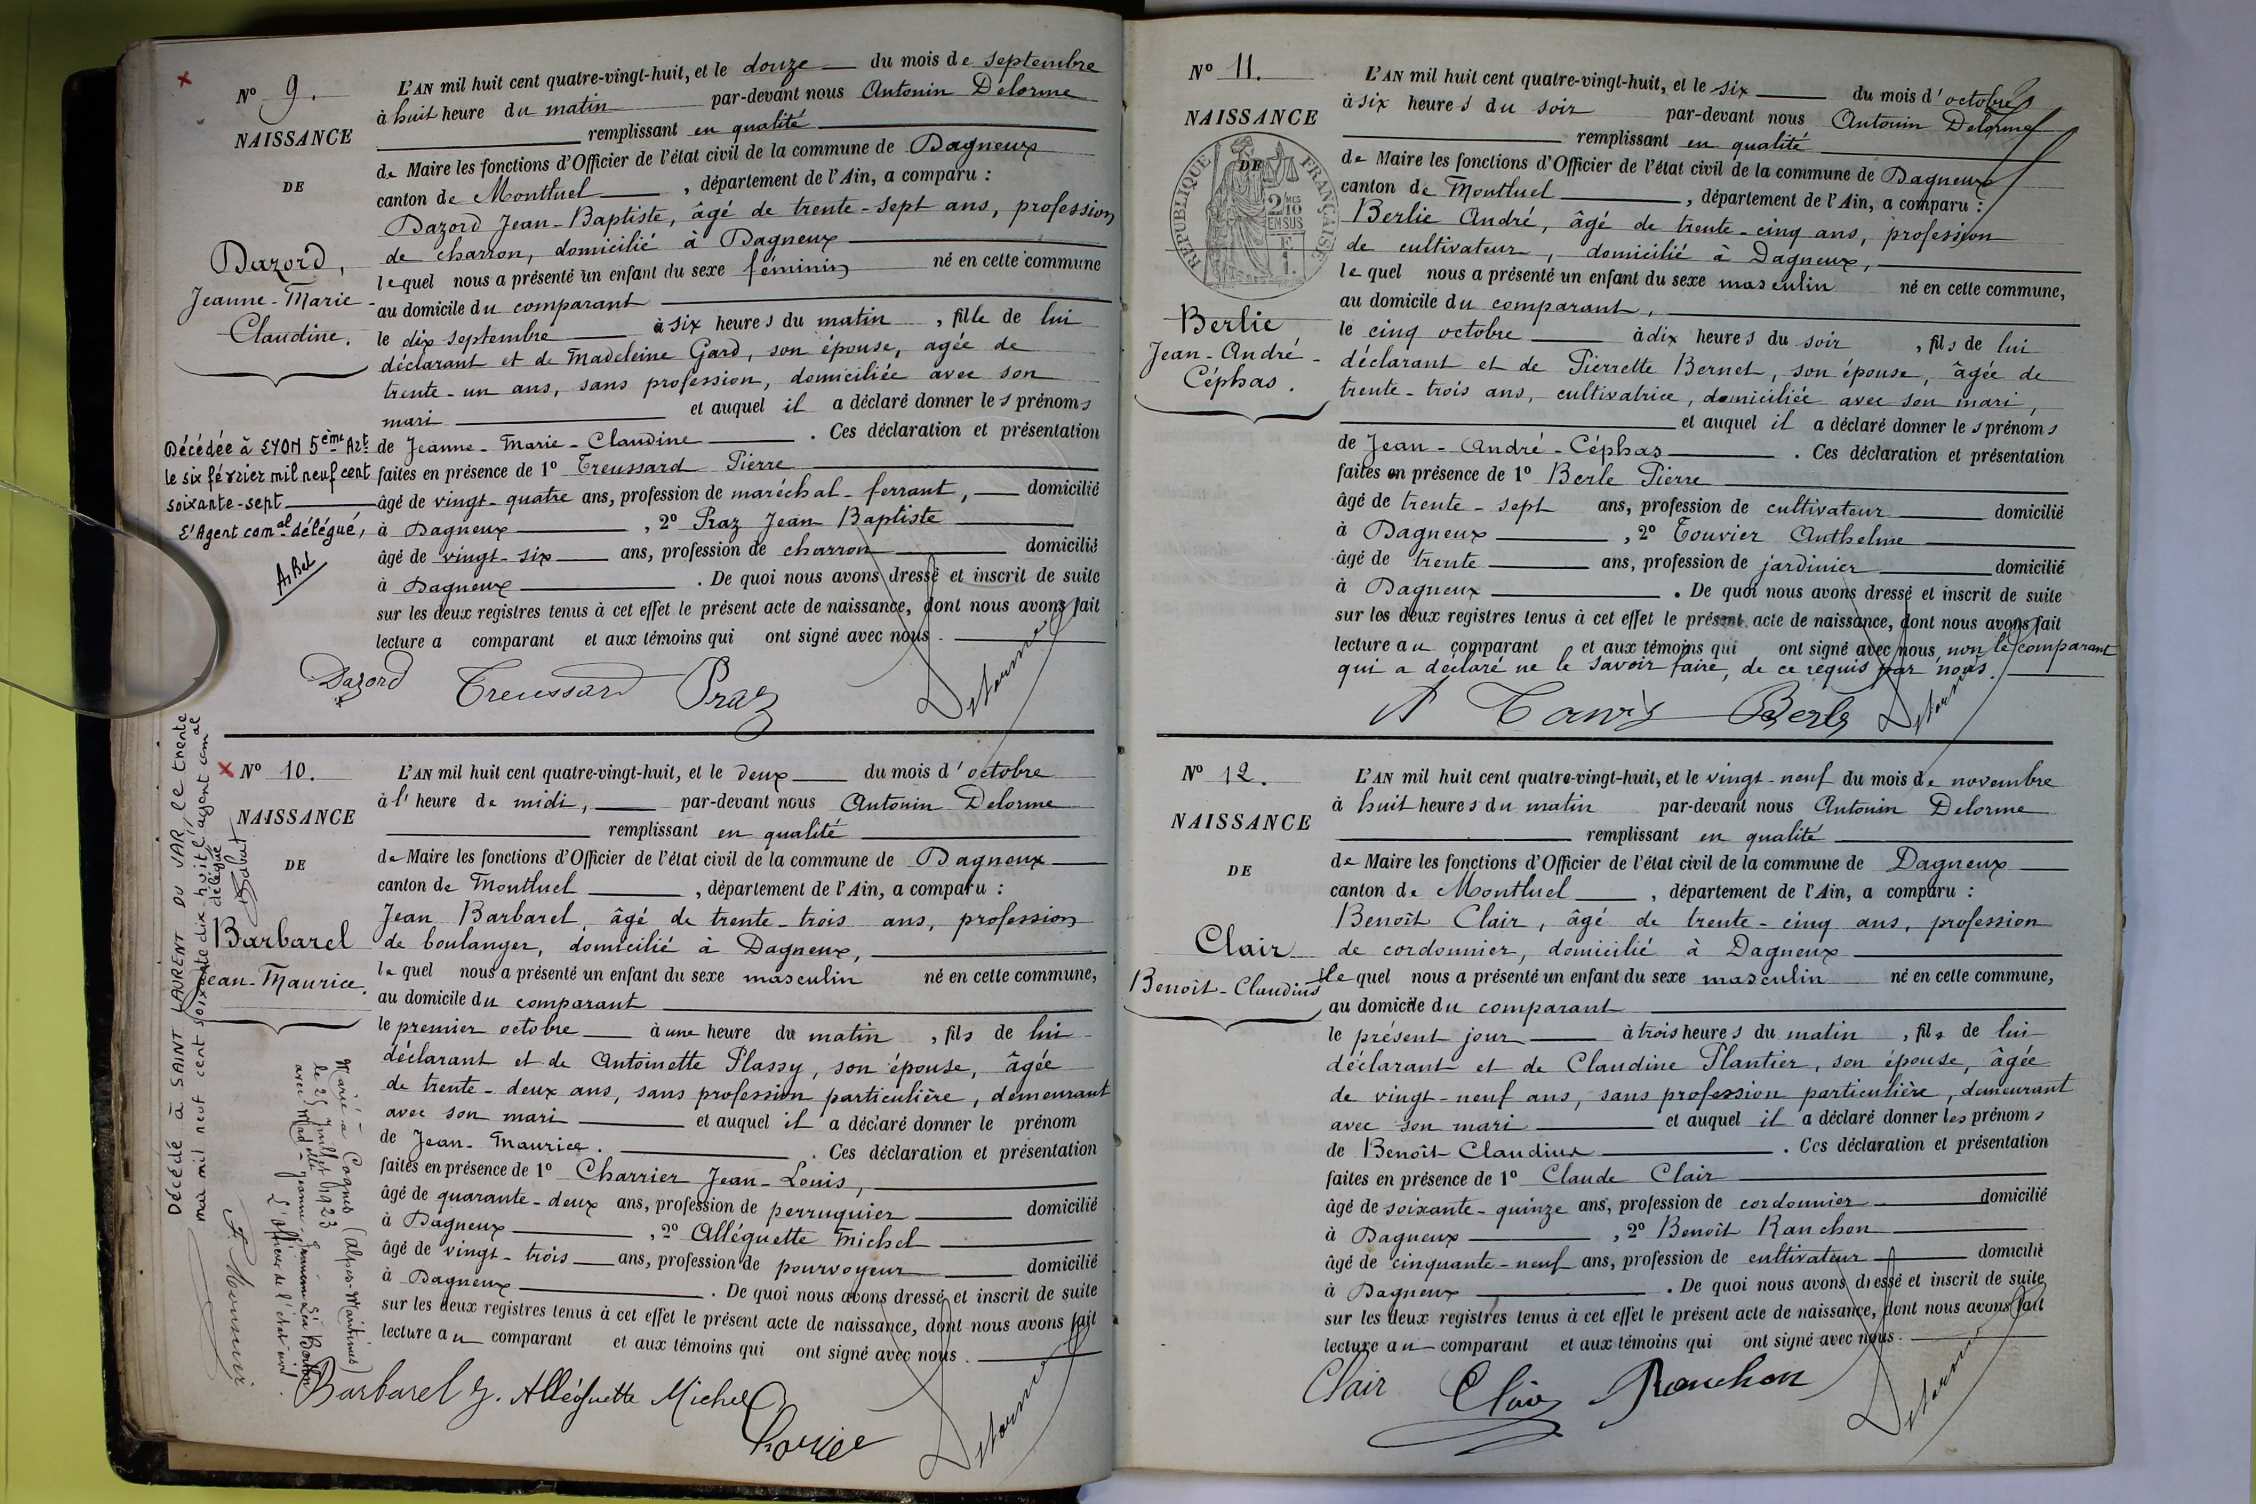 N° 9.
NAISSANCE
DE
Dazord,
Jeanne-Marie-
Claudine.
L'AN mil huit cent quatre-vingt-huit, et le douze du mois de septembre
à huit heure du matin par-devant nous Antonin Delorme
remplissant en qualité
de Maire les fonctions d'Officier de l'état civil de la commune de Dagneux
canton de Montluel, département de l'Ain, a comparu :
Dazord Jean-Baptiste, âgé de trente-sept ans, profession
de charron, domicilié à Dagneux
lequel nous a présenté un enfant du sexe féminin né en cette commune
au domicile du comparant
le dix septembre à six heures du matin, fille de lui
déclarant et de Madeleine Gard, son épouse, agée de
trente-un ans, sans profession, domiciliée avec son
mari et auquel il a déclaré donner les prénoms
de Jeanne-Marie-Claudine. Ces déclaration et présentation
faites en présence de 1° Treussard Pierre
âgé de vingt-quatre ans, profession de maréchal-ferrant, domicilié
à Dagneux, 2° Praz Jean Baptiste
âgé de vingt-six ans, profession de charron domicilié
à Dagneux. De quoi nous avons dressé et inscrit de suite
sur les deux registres tenus à cet effet le présent acte de naissance, dont nous avons fait
lecture a comparant et aux témoins qui ont signé avec nous.
Dazord Treussard Praz Delorme
Décédée à LYON 5ème Art
le six février mil neuf cent
soixante-sept
L'Agent comal délégué,
N° 10.
NAISSANCE
DE
Barbarel
Jean-Maurice.
L'AN mil huit cent quatre-vingt-huit, et le deux du mois d'octobre
à l'heure de midi, par-devant nous Antonin Delorme
remplissant en qualité
de Maire les fonctions d'Officier de l'état civil de la commune de Dagneux
canton de Montluel, département de l'Ain, a comparu :
Jean Barbarel, âgé de trente-trois ans, profession
de boulanger, domicilié à Dagneux,
lequel nous a présenté un enfant du sexe masculin né en cette commune,
au domicile du comparant
le premier octobre à une heure du matin, fils de lui
déclarant et de Antoinette Plassy, son épouse, âgée
de trente-deux ans, sans profession particulière, demeurant
avec son mari et auquel il a déclaré donner le prénom
de Jean-Maurice. Ces déclaration et présentation
faites en présence de 1° Charrier Jean-Louis,
âgé de quarante-deux ans, profession de perruquier domicilié
à Dagneux, 2° Alléguette Michel
âgé de vingt-trois ans, profession de pourvoyeur domicilié
à Dagneux. De quoi nous avons dressé et inscrit de suite
sur les deux registres tenus à cet effet le présent acte de naissance, dont nous avons fait
lecture au comparant et aux témoins qui ont signé avec nous.
Barbarel J. Alléguette Michel
Delorme
Décédé à SAINT LAURENT DU VAR, le trente
mai mil neuf cent soixante dix-huit l'agent comal
délégué
Marié à Cagnes (Alpes-Maritimes)
le 25 Juillet 1923
avec Madelle Jeanne
L'officier de l'état civil.
N° 11.
NAISSANCE
DE
RÉPUBLIQUE FRANÇAISE
2/10
EN SUS
Berlie
Jean-André-
Céphas.
L'AN mil huit cent quatre-vingt-huit, et le six du mois d'octobre
à six heures du soir par-devant nous Antonin Delorme
remplissant en qualité
de Maire les fonctions d'Officier de l'état civil de la commune de Dagneux
canton de Montluel, département de l'Ain, a comparu :
Berlie André, âgé de trente-cinq ans, profession
de cultivateur, domicilié à Dagneux,
lequel nous a présenté un enfant du sexe masculin né en cette commune,
au domicile du comparant,
le cinq octobre à dix heures du soir, fils de lui
déclarant et de Pierrette Bernet, son épouse, âgée de
trente-trois ans, cultivatrice, domiciliée avec son mari,
et auquel il a déclaré donner les prénoms
de Jean-André-Céphas. Ces déclaration et présentation
faites en présence de 1° Berle Pierre
âgé de trente-sept ans, profession de cultivateur domicilié
à Dagneux, 2° Touvier Anthelme
âgé de trente ans, profession de jardinier domicilié
à Dagneux. De quoi nous avons dressé et inscrit de suite
sur les deux registres tenus à cet effet le présent acte de naissance, dont nous avons fait
lecture au comparant et aux témoins qui ont signé avec nous, non le comparant
qui a déclaré ne le savoir faire, de ce requis par nous.
Berle Delorme
N° 12.
NAISSANCE
DE
Clair
Benoît-Claudius
L'AN mil huit cent quatre-vingt-huit, et le vingt-neuf du mois de novembre
à huit heures du matin par-devant nous Antonin Delorme
remplissant en qualité
de Maire les fonctions d'Officier de l'état civil de la commune de Dagneux
canton de Montluel, département de l'Ain, a comparu :
Benoît Clair, âgé de trente-cinq ans, profession
de cordonnier, domicilié à Dagneux
lequel nous a présenté un enfant du sexe masculin né en cette commune,
au domicile du comparant
le présent jour à trois heures du matin, fils de lui
déclarant et de Claudine Plantier, son épouse, âgée
de vingt-neuf ans, sans profession particulière, demeurant
avec son mari et auquel il a déclaré donner les prénoms
de Benoît Claudius. Ces déclaration et présentation
faites en présence de 1° Claude Clair
âgé de soixante-quinze ans, profession de cordonnier domicilié
à Dagneux, 2° Benoît Ranchon
âgé de cinquante-neuf ans, profession de cultivateur domicilié
à Dagneux. De quoi nous avons dressé et inscrit de suite
sur les deux registres tenus à cet effet le présent acte de naissance, dont nous avons fait
lecture au comparant et aux témoins qui ont signé avec nous.
Clair Clair Ranchon Delorme